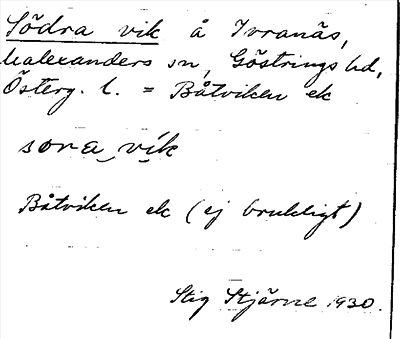 Södra vik å Ivranäs,
Ualexanders sn, Göstrings hd,
Österg. l. = Båtviken ek
sora vik
Båtviken ek (ej brukligt)
Stig Stjärne 1930.